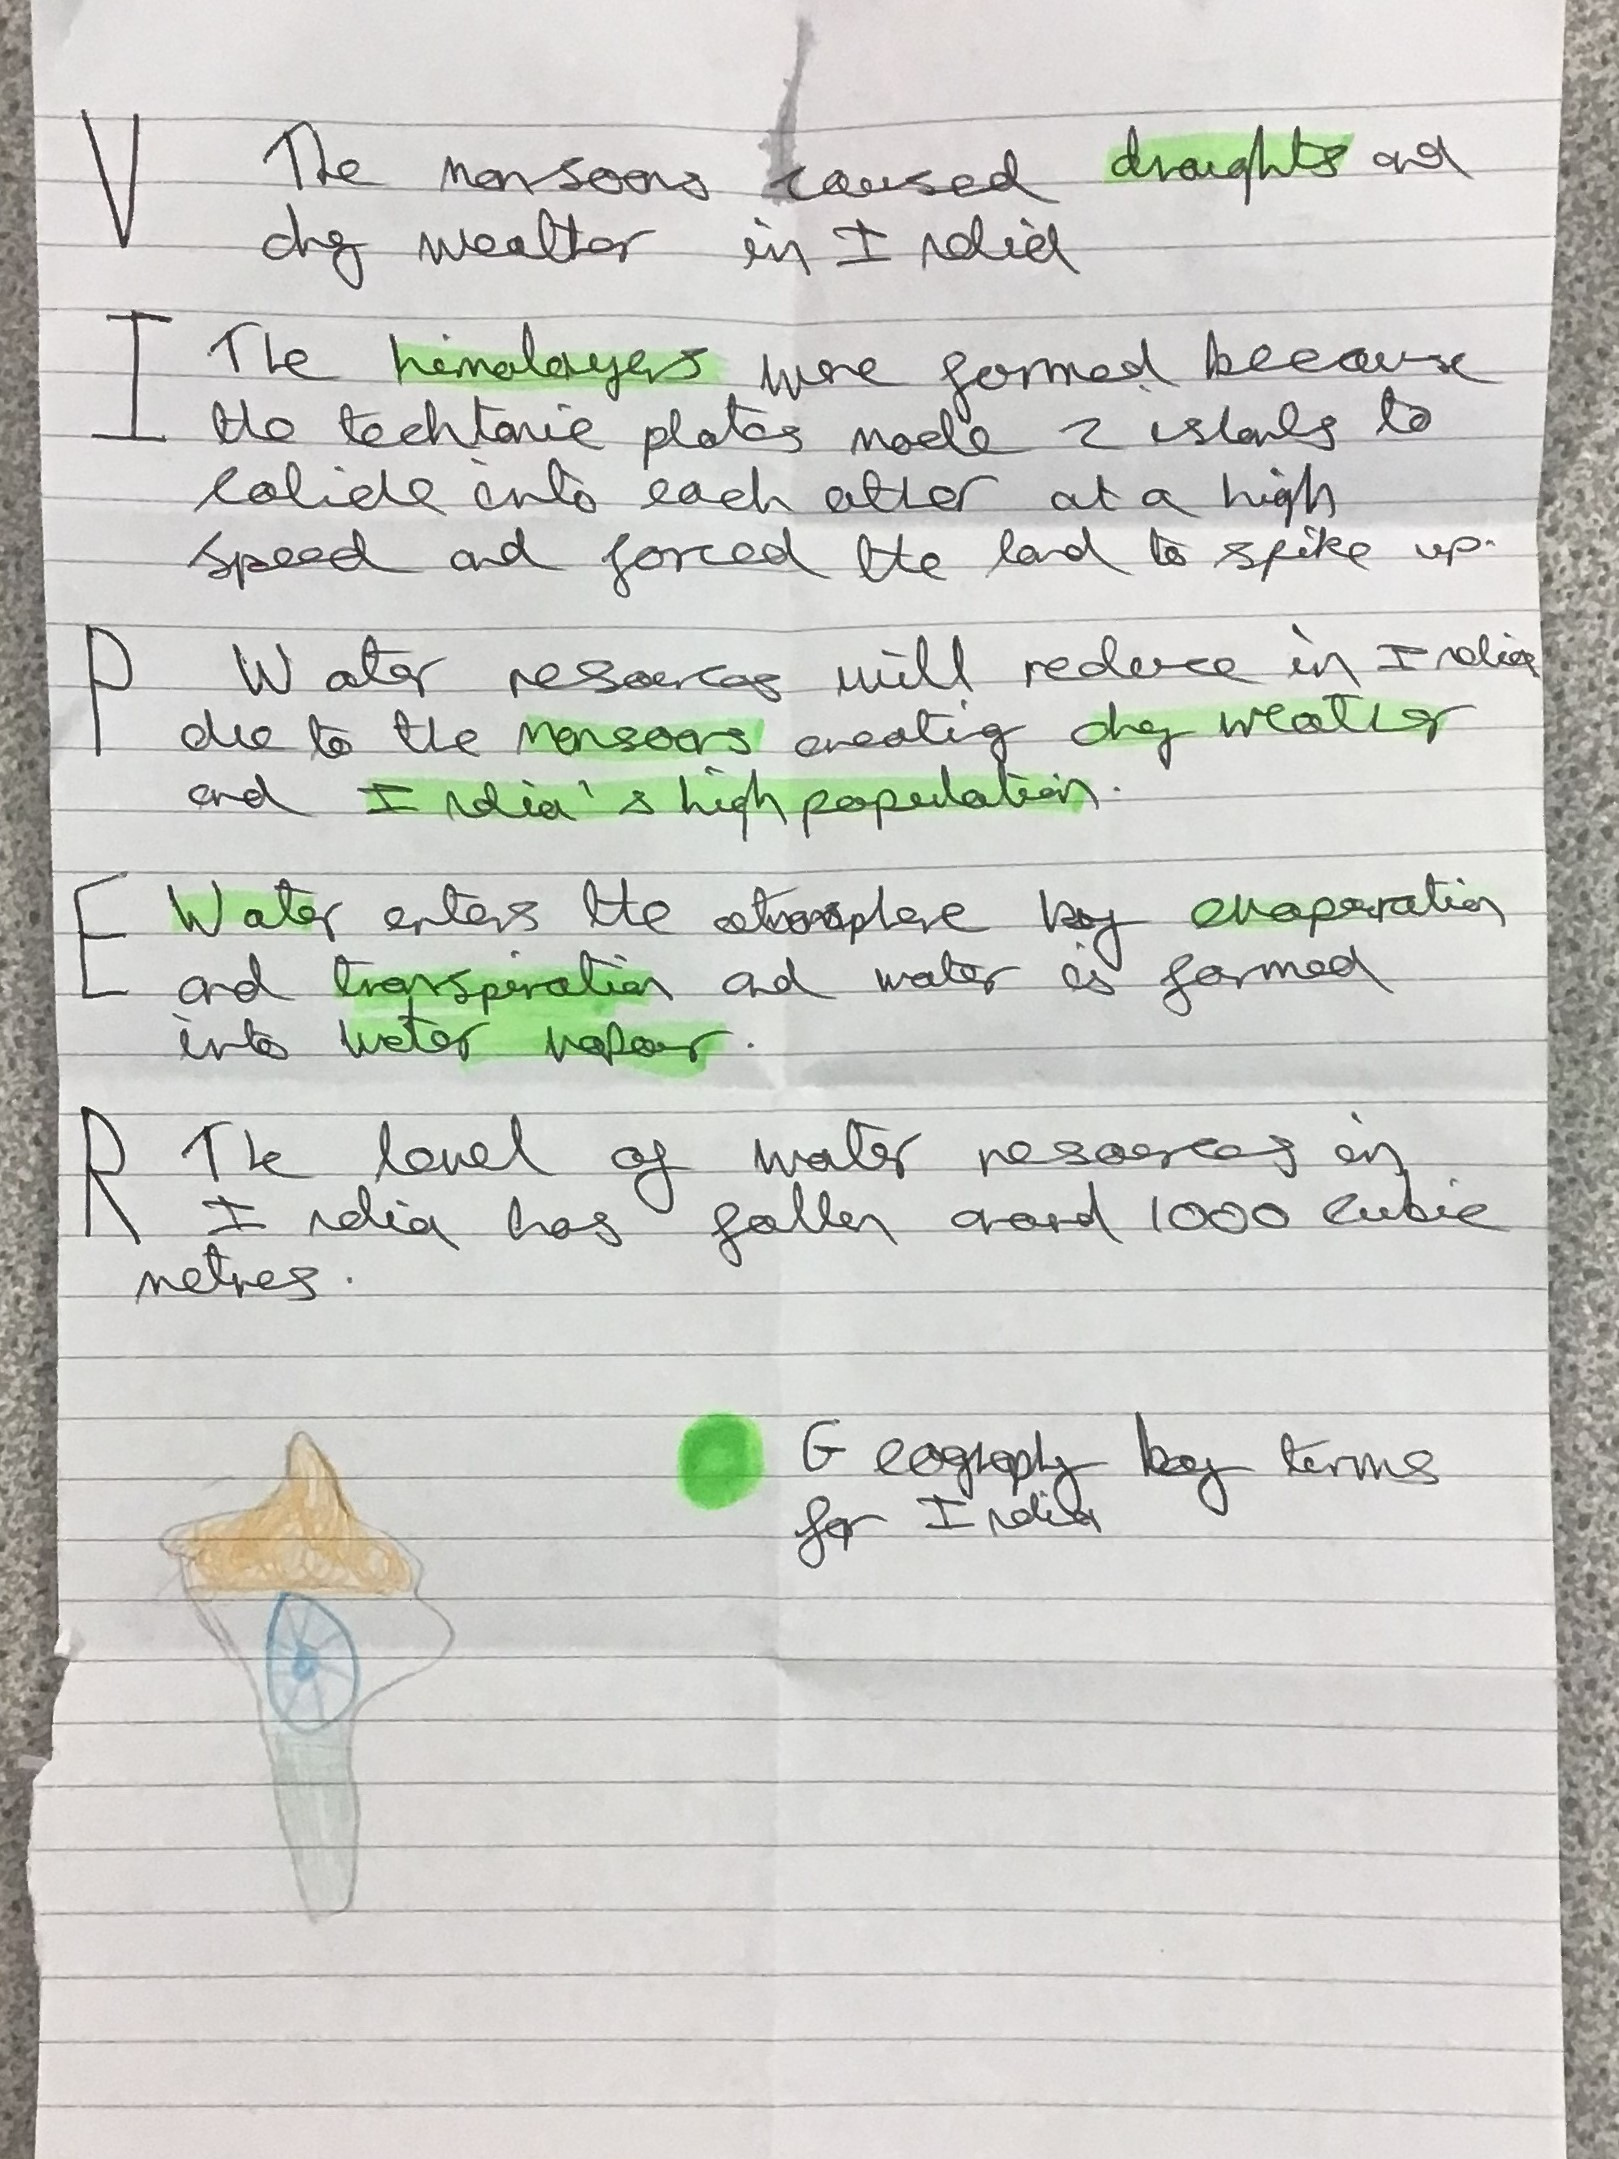 V The monsoons caused draughts and
dry weather in India
I The himalayers were formed because
the techtonic plates made 2 islands to
colide into each other at a high
speed and forced the land to spike up.
P Water resources will reduce in India
due to the monsoons creating dry weather
and India's high population.
E Water enters the atmosphere by evaporation
and transpiration and water is formed
into water vapour.
R The level of water resources in
India has fallen around 1000 cubic
metres.
Geography key terms
for India